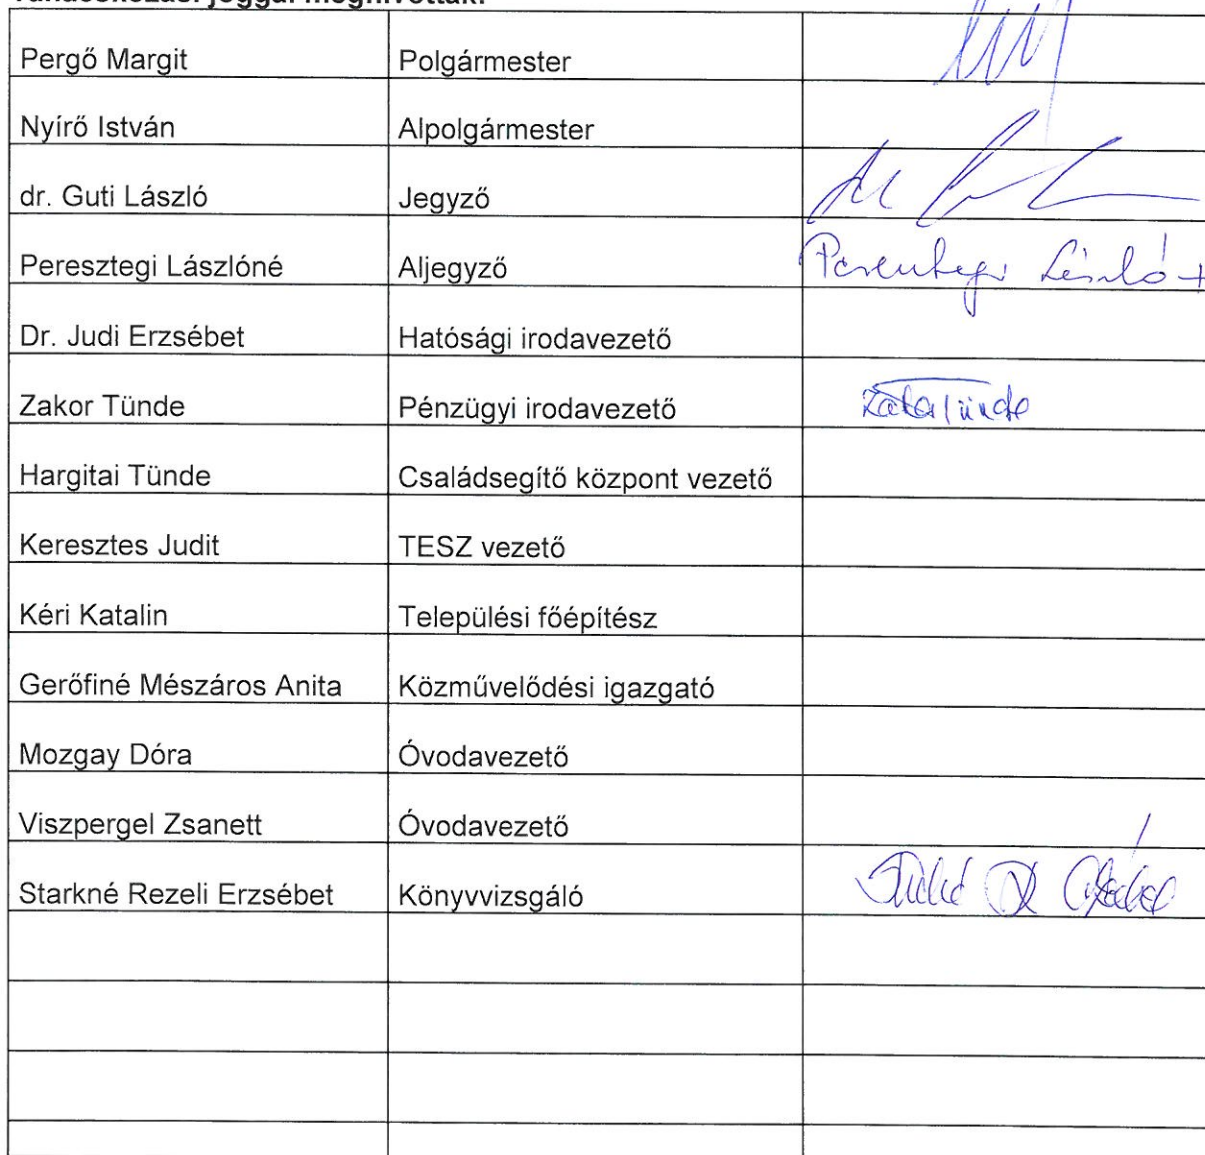 Tanácskozási joggal meghívottak:
Pergő Margit Polgármester
Nyírő István Alpolgármester
dr. Guti László Jegyző
Peresztegi Lászlóné Aljegyző Peresztegi László
Dr. Judi Erzsébet Hatósági irodavezető
Zakor Tünde Pénzügyi irodavezető Zakor Tünde
Hargitai Tünde Családsegítő központ vezető
Keresztes Judit TESZ vezető
Kéri Katalin Települési főépítész
Gerőfiné Mészáros Anita Közművelődési igazgató
Mozgay Dóra Óvodavezető
Viszpergel Zsanett Óvodavezető
Starkné Rezeli Erzsébet Könyvvizsgáló